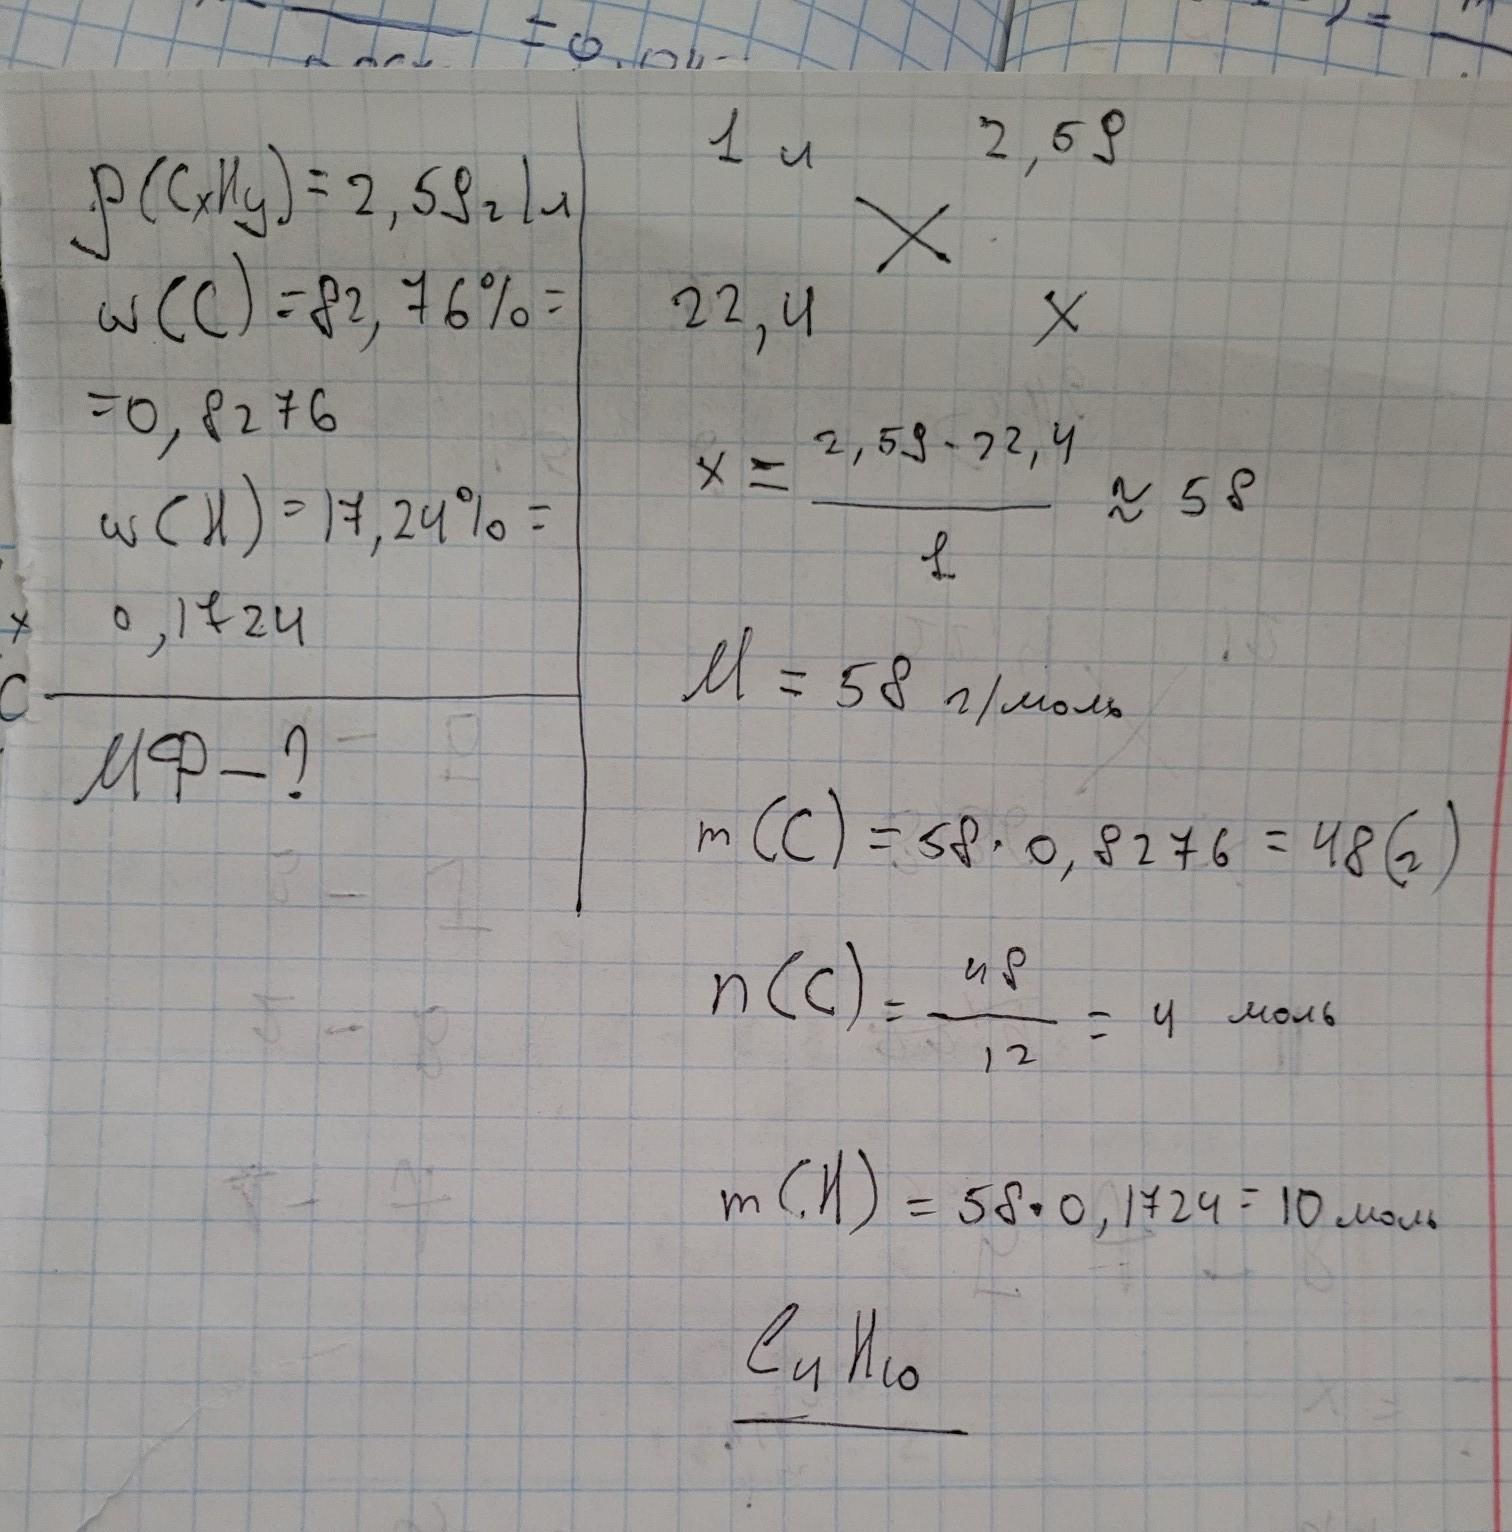 = 0,04
ρ(CxHy)=2,59г/л
w(C)=82,76%=
=0,8276
w(H)=17,24%=
0,1724
МФ-?
1 л 2,59
22,4 x
x = 2,59·22,4 / 1 ≈ 58
M = 58 г/моль
m(C) = 58·0,8276 = 48(г)
n(C) = 48 / 12 = 4 моль
m(H) = 58·0,1724 = 10 моль
C4H10